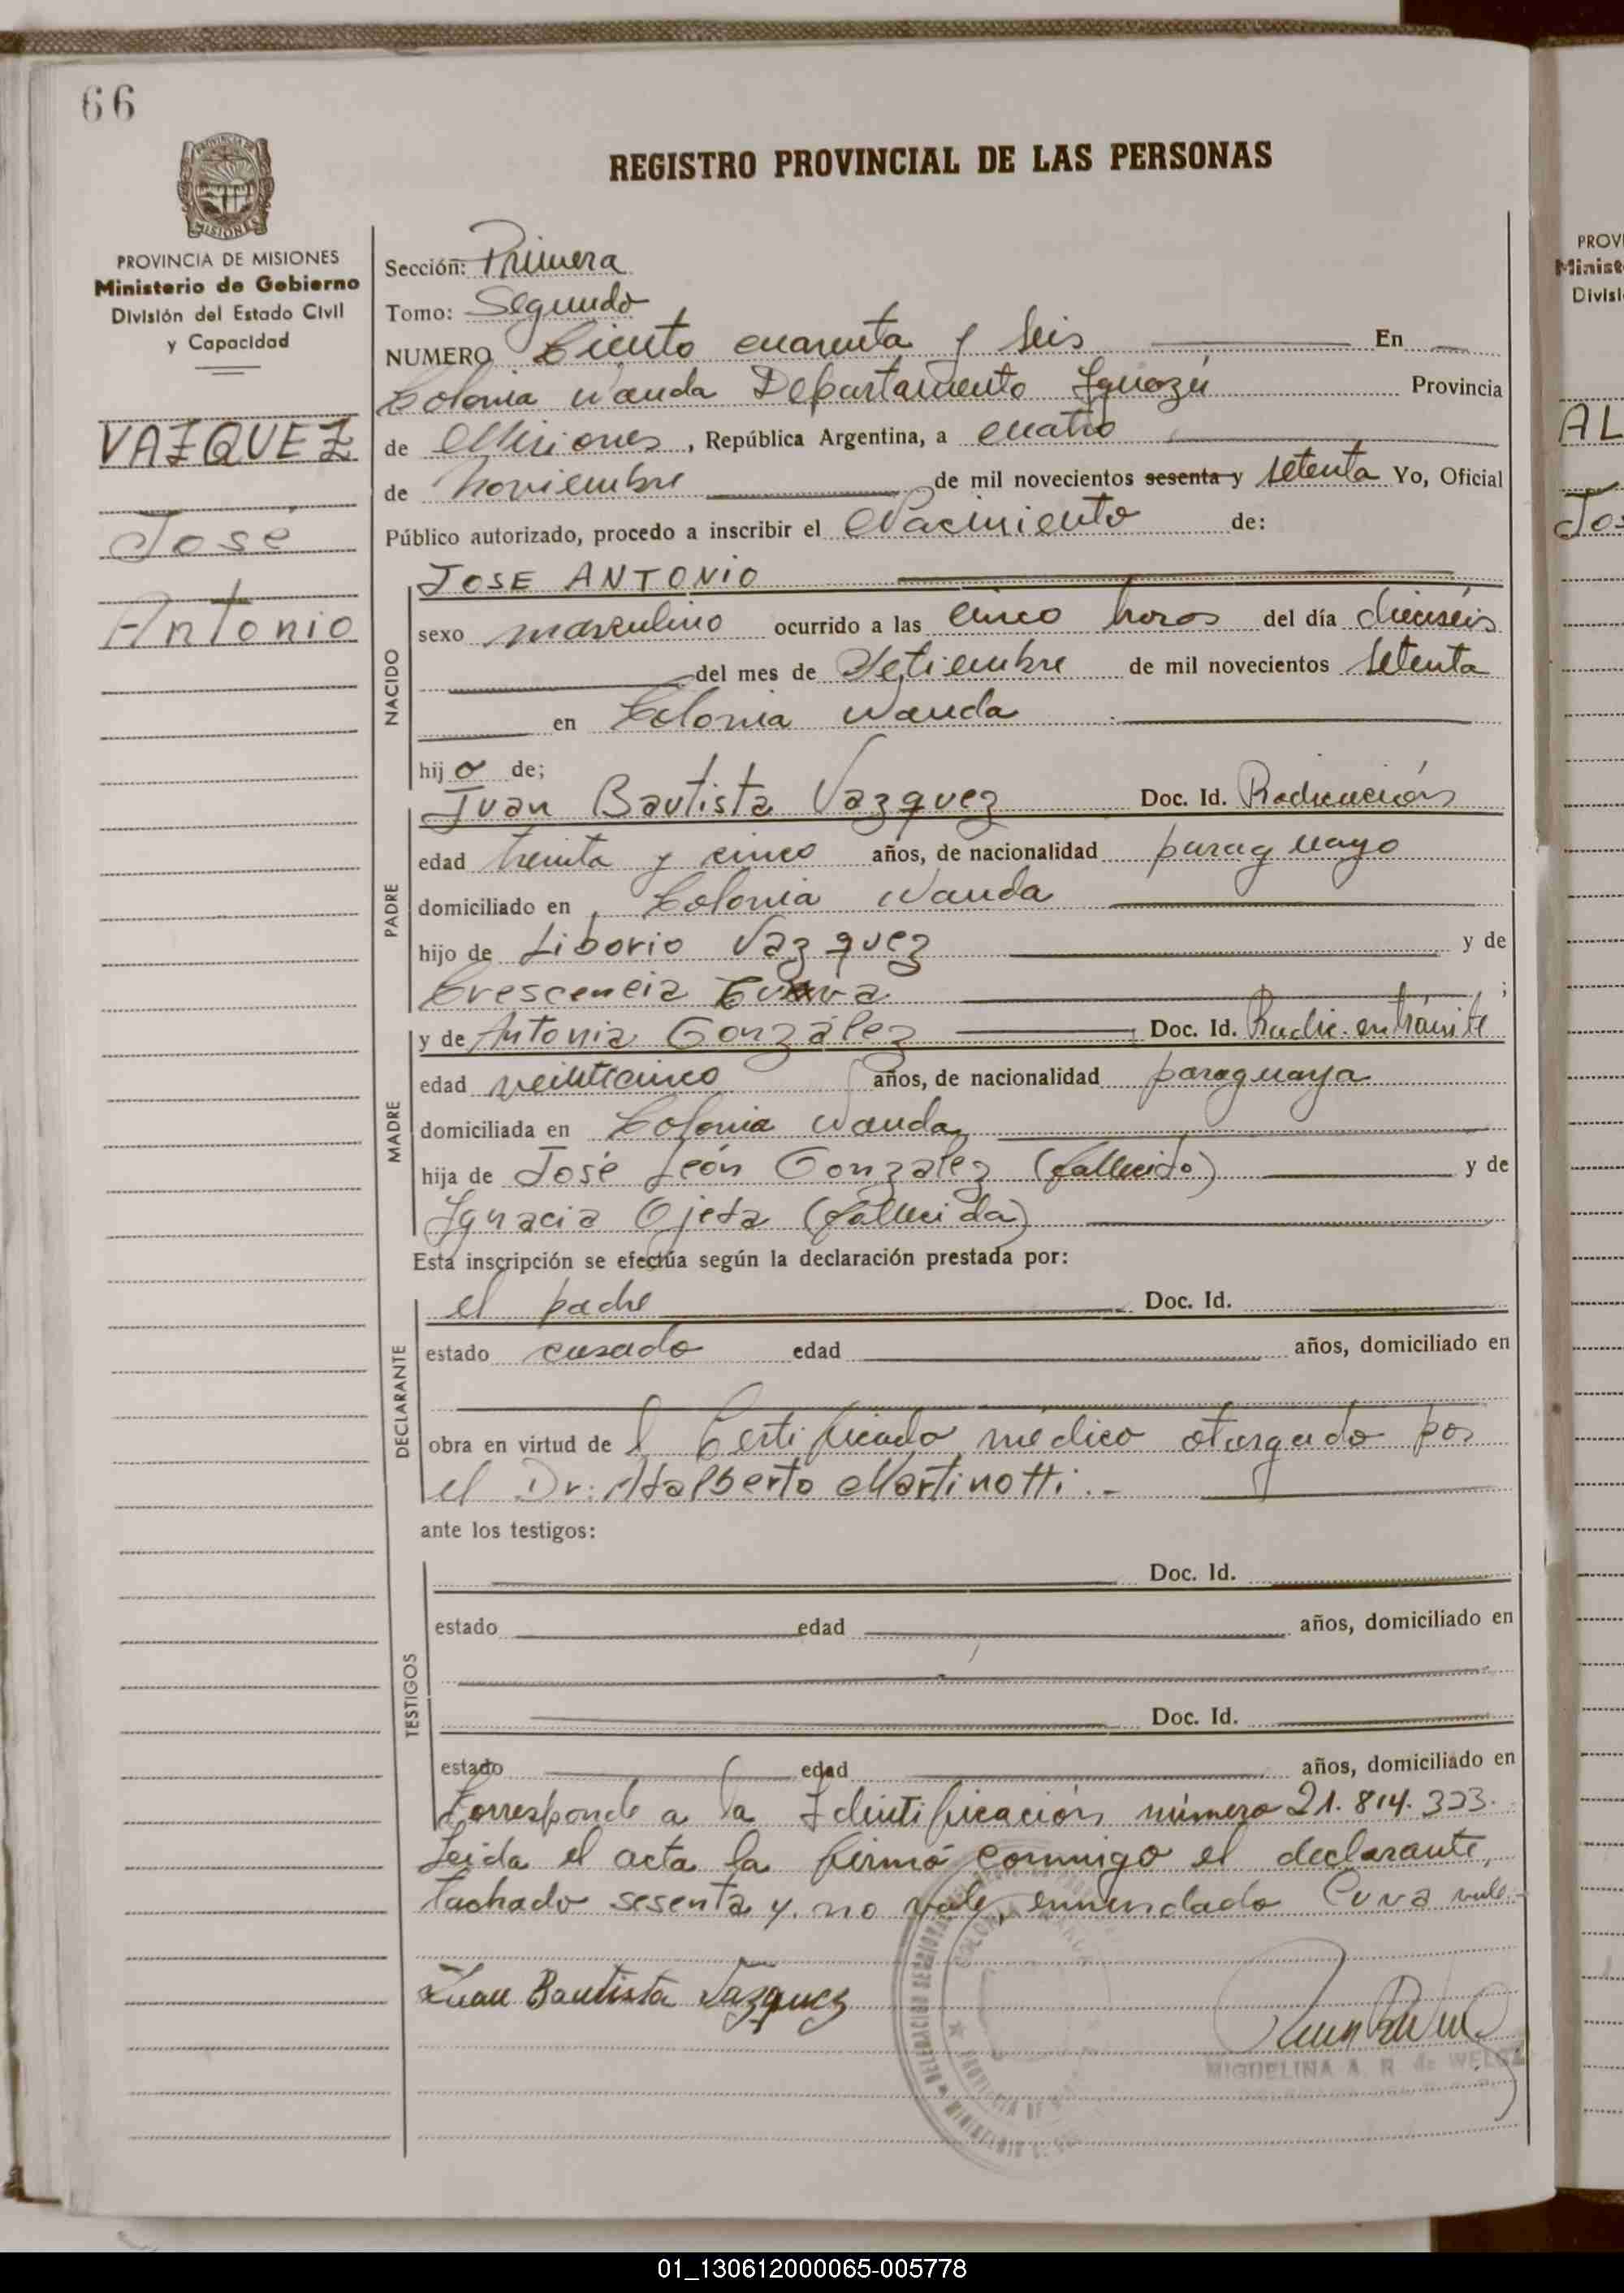 66
REGISTRO PROVINCIAL DE LAS PERSONAS
PROVINCIA DE MISIONES
Ministerio de Gobierno
División del Estado Civil
y Capacidad
VAZQUEZ
José
Antonio
Sección: Primera
Tomo: Segundo
NUMERO Ciento cuarenta y seis En
Colonia Wanda Departamento Iguazú Provincia
de Misiones, República Argentina, a cuatro
de noviembre de mil novecientos sesenta y setenta Yo, Oficial
Público autorizado, procedo a inscribir el Nacimiento de:
NACIDO
JOSE ANTONIO
sexo masculino ocurrido a las cinco horas del día dieciséis
del mes de Setiembre de mil novecientos setenta
en Colonia Wanda
hijo de;
PADRE
Juan Bautista Vazquez Doc. Id. Radicación
edad treinta y cinco años, de nacionalidad paraguayo
domiciliado en Colonia Wanda
hijo de Liborio Vazquez y de
Crescencia ;
MADRE
y de Antonia González Doc. Id. Radic. en trámite
edad veinticinco años, de nacionalidad paraguaya
domiciliada en Colonia Wanda
hija de José León González (fallecido) y de
Ignacia Ojeda (fallecida)
Esta inscripción se efectúa según la declaración prestada por:
DECLARANTE
el padre Doc. Id.
estado casado edad años, domiciliado en
obra en virtud de l Certificado médico otorgado por
el Dr. Adalberto Martinotti.-
ante los testigos:
TESTIGOS
Doc. Id.
estado edad años, domiciliado en
Doc. Id.
estado edad años, domiciliado en
Corresponde a la Identificación número 21.814.323.
Leida el acta la firmó conmigo el declarante,
tachado sesenta y. no vale, enmendado vale.-
Juan Bautista Vazquez
MIGUELINA A. R. de
PROV
Minist
Divisi
AL
Jos
01_130612000065-005778